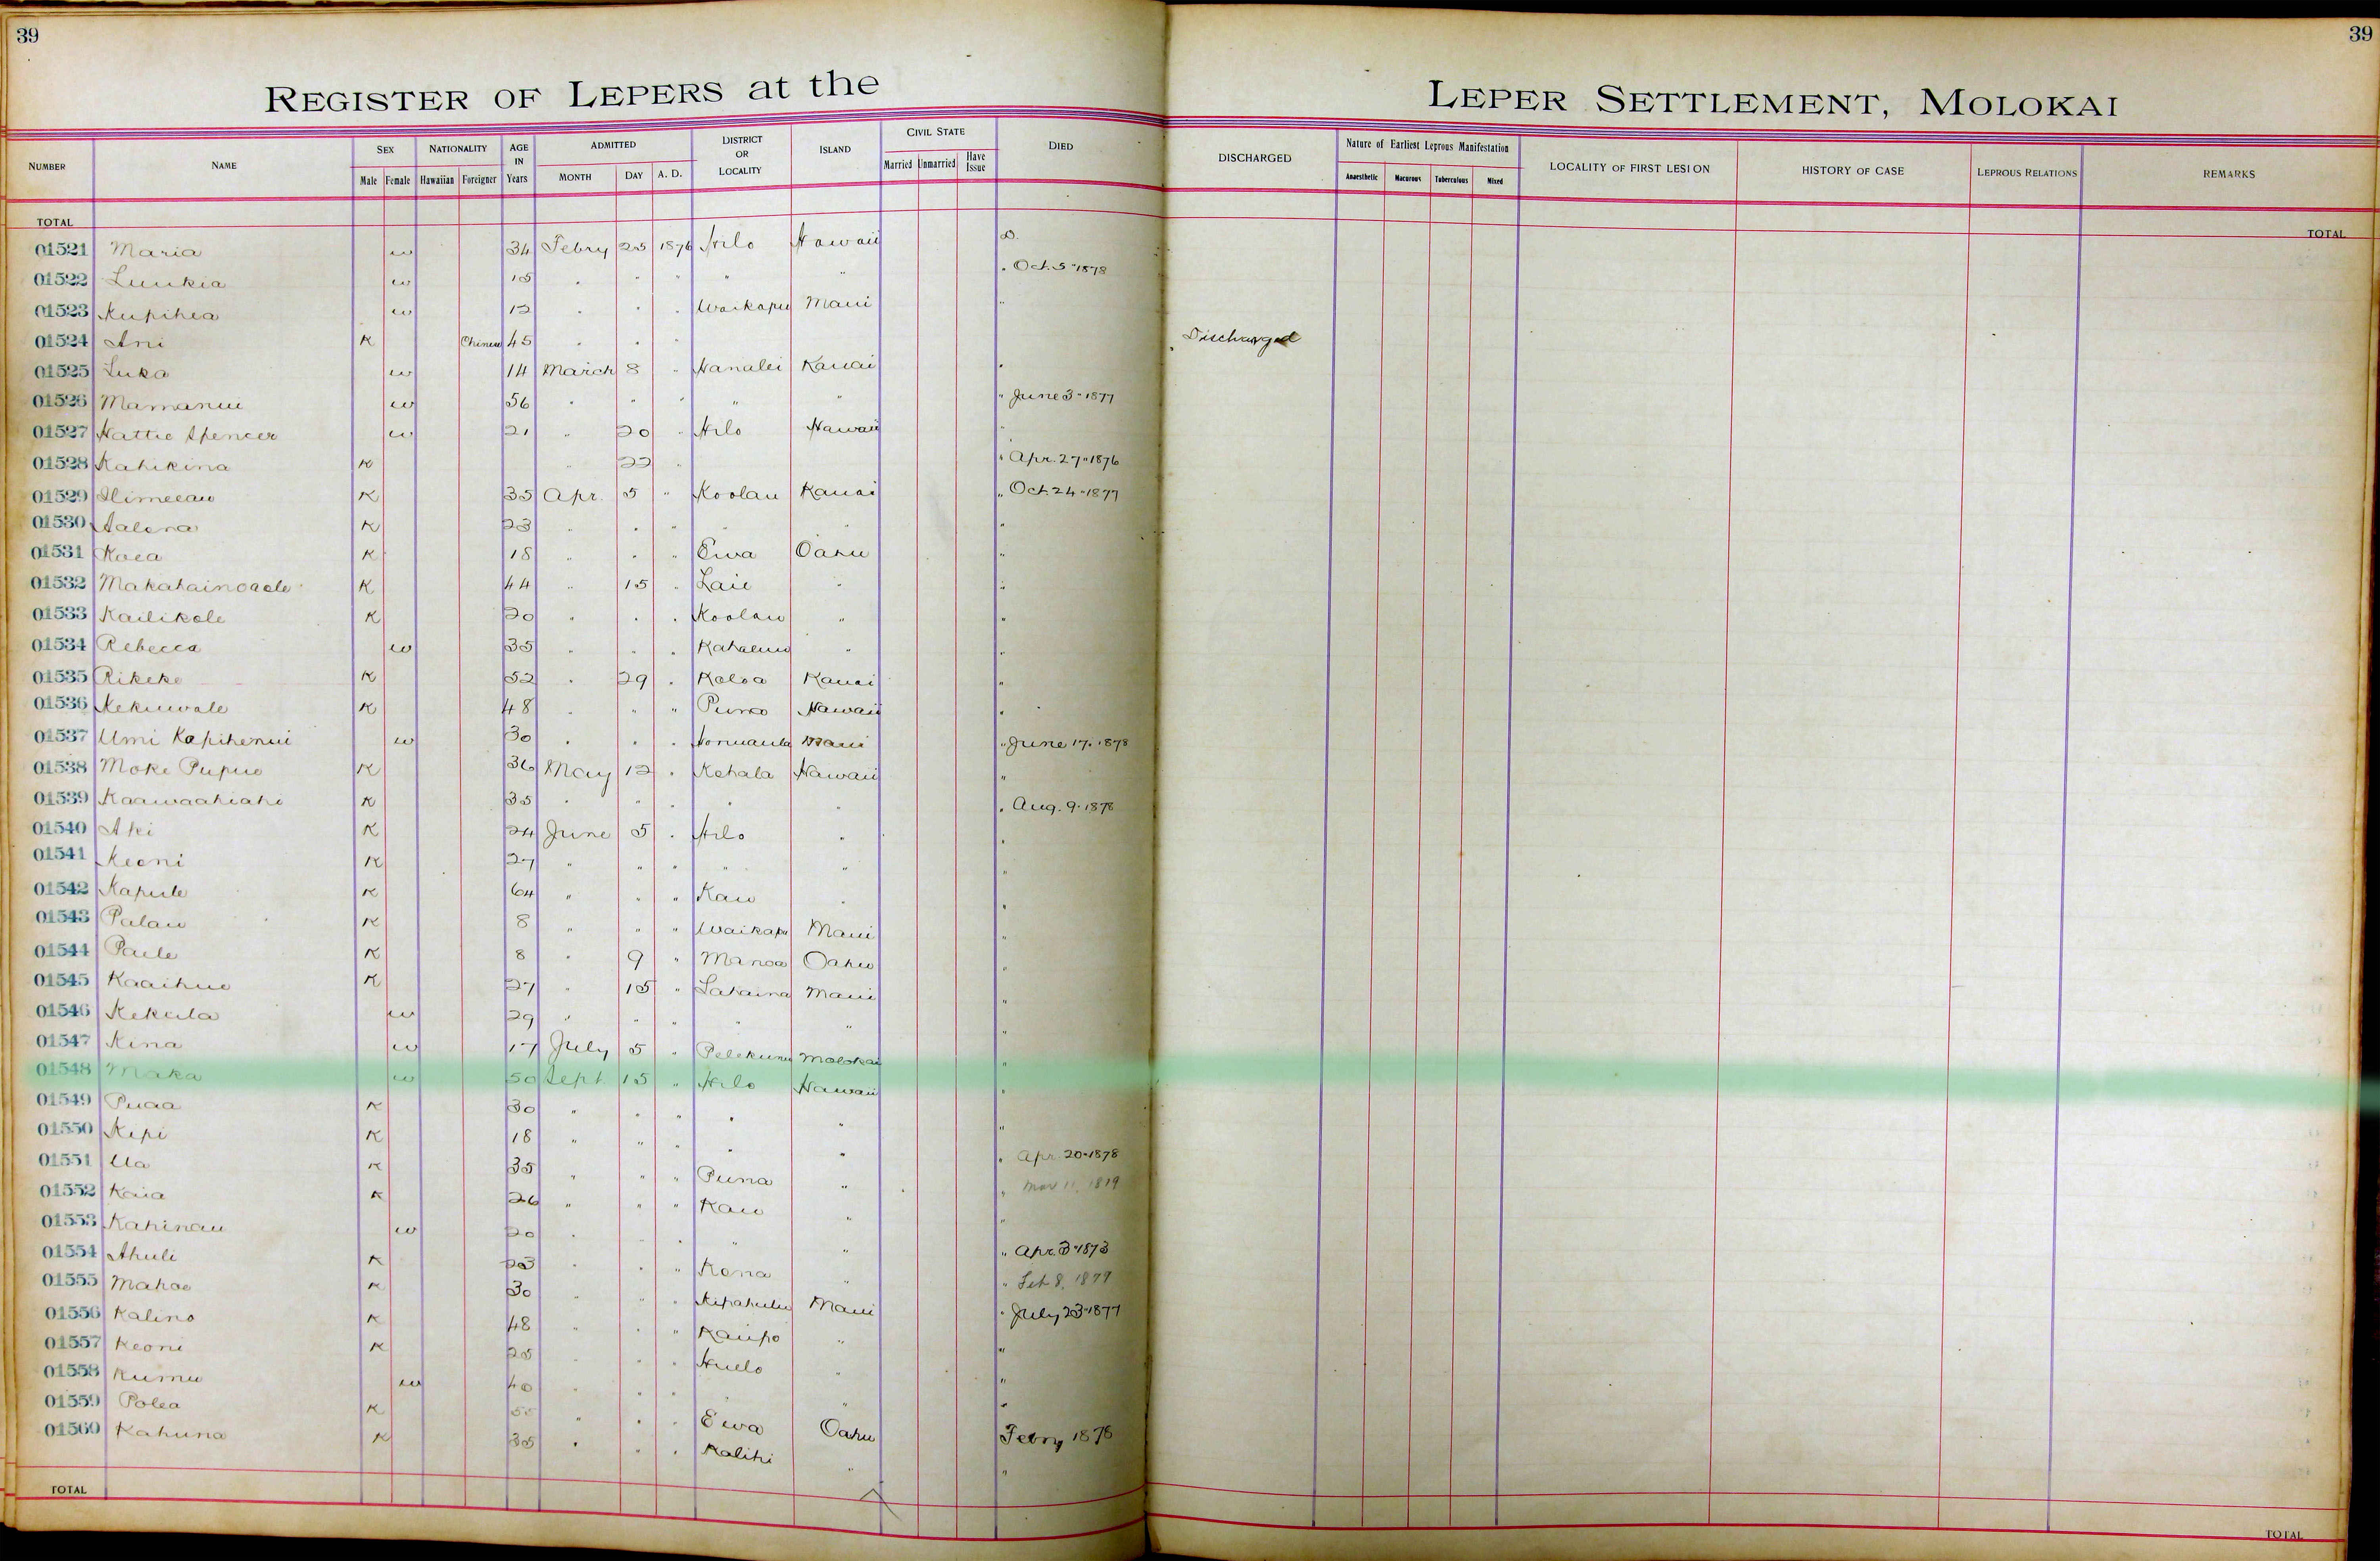 39
39
REGISTER OF LEPERS at the LEPER SETTLEMENT, MOLOKAI
NUMBER NAME SEX Male Female NATIONALITY Hawaiian Foreigner AGE IN Years ADMITTED MONTH DAY A. D. DISTRICT OR LOCALITY ISLAND CIVIL STATE Married Unmarried Have Issue DIED DISCHARGED Nature of Earliest Leprous Manifestation Anaesthetic Macurous Tuberculous Mixed LOCALITY OF FIRST LESION HISTORY OF CASE LEPROUS RELATIONS REMARKS
TOTAL TOTAL
01521 Maria w 34 Febry 25 1876 Hilo Hawaii D.
01522 Luukia w 15 " " " " " " Oct. 5 " 1878
01523 Kupihea w 12 " " " Waikapu Maui "
01524 Ani K Chinese 45 " " " Discharged
01525 Luka w 14 March 8 " Hanalei Kauai "
01526 Mamanui w 56 " " " " " " June 3 " 1877
01527 Hattie Spencer w 21 " 20 " Hilo Hawaii "
01528 Kahikina K " 22 " " Apr. 27 " 1876
01529 K 35 Apr. 5 " Koolau Kauai " Oct. 24 " 1877
01530 Aalona K 23 " " " " " "
01531 Koea K 18 " " " Ewa Oahu "
01532 Makahainoaole K 44 " 15 " Laie " "
01533 Kailikole K 20 " " " Koolau " "
01534 Rebecca w 35 " " " Kahaluu " "
01535 Rikeke K 52 " 29 " Koloa Kauai "
01536 Kekuwale K 48 " " " Puna Hawaii "
01537 Umi Kapihenui w 30 " " " Honuaula Maui " June 17. 1878
01538 Moke Pupuo K 36 May 12 " Kohala Hawaii "
01539 Kaawaahiahi K 35 " " " " " " Aug. 9. 1878
01540 Aki K 24 June 5 " Hilo " "
01541 Keoni K 27 " " " " " "
01542 Kapule K 64 " " " Kau " "
01543 Palau K 8 " " " Waikapu Maui "
01544 Paule K 8 " 9 " Manoa Oahu "
01545 Kaaihue K 27 " 15 " Lahaina Maui "
01546 Kekula w 29 " " " " " "
01547 Kina w 17 July 5 " Pelekunu Molokai "
01548 Maka w 50 Sept. 15 " Hilo Hawaii "
01549 Puaa K 30 " " " " " "
01550 Kipi K 18 " " " " " " Apr. 20 " 1878
01551 Ua K 35 " " " Puna " " Mar 11, 1819
01552 Kaia K 26 " " " Kau " "
01553 Kahinau w 20 " " " " " " Apr. 3 " 1873
01554 Ahuli K 23 " " " Kona " " Feb 8, 1879
01555 Mahoe K 30 " " " Kipahulu Maui " July 23 " 1877
01556 Kalino K 48 " " " Kaupo " "
01557 Keoni K 25 " " " Huelo " "
01558 Kumu w 40 " " " " "
01559 Polea K 55 " " " Ewa Oahu Febry 1878
01560 Kahuna K 35 " " " Kalihi " "
TOTAL TOTAL